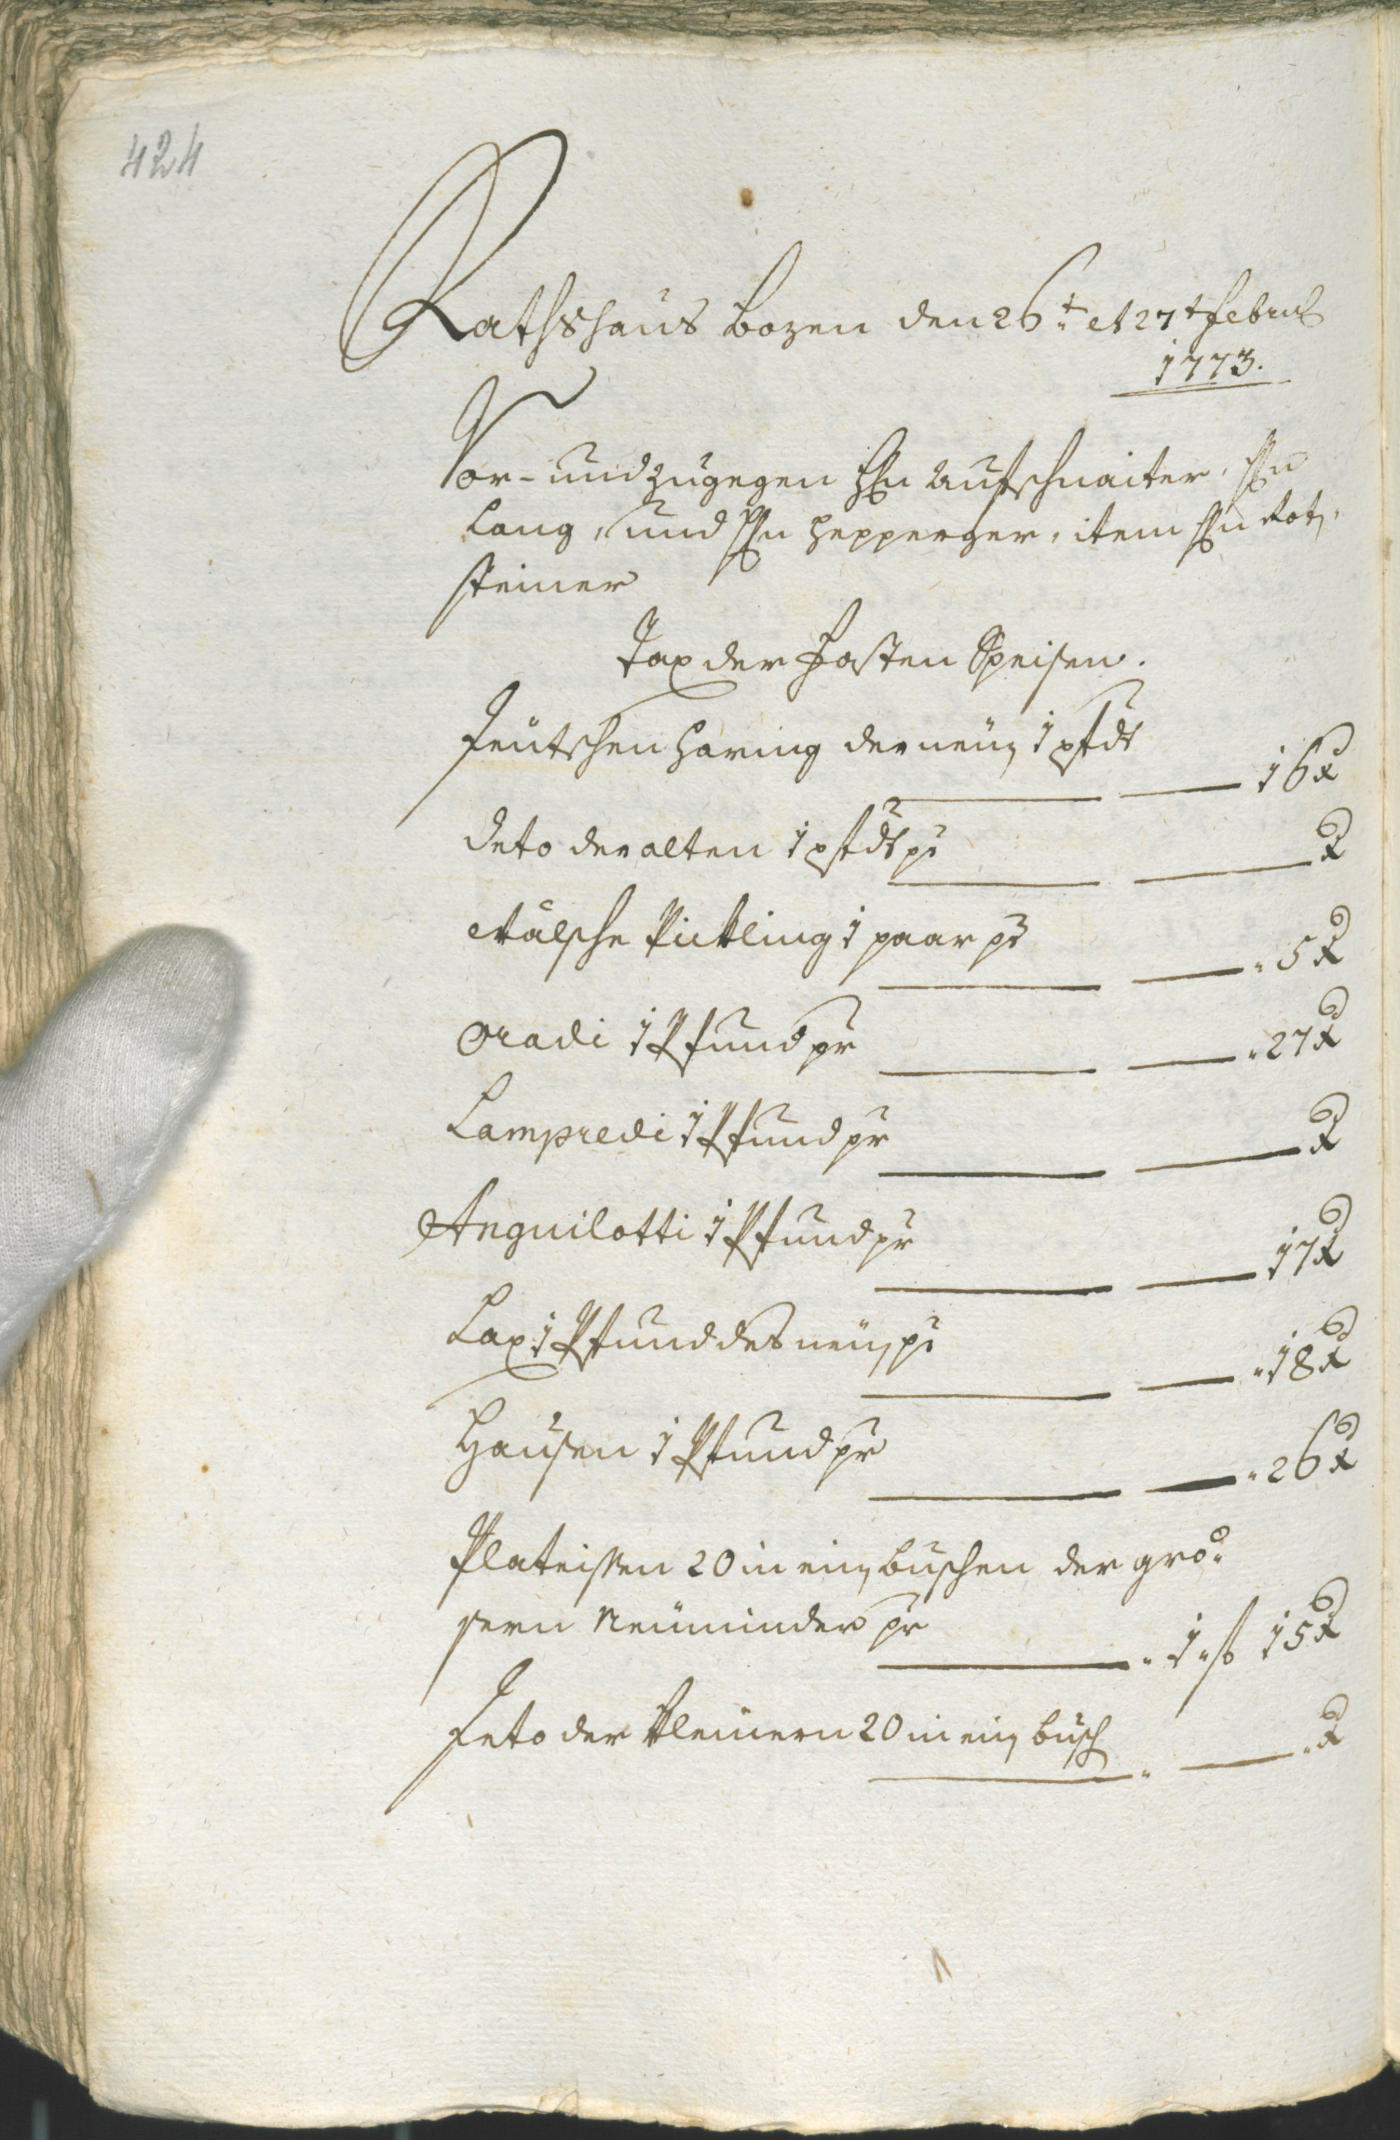 424
Rathshaus Bozen den 26t et 27t Februar
1773.
Vor- und zugegen Hrn Aufschnaiter, Hrn
Lang, und Hrn Hepperger, item Hrn Rot,
steiner
Tax der Fasten Speisen.
Teutschen Häring der neuen 1 pfdt
16 x
deto der alten 1 pfdt pr
x
Wälsche Pickling 1 paar pr
5 x
Oradi 1 Pfund pr
27 x
Lampredi 1 Pfund pr
x
Anguilotti 1 Pfund pr
17 x
Lax 1 Pfund des neuen pr
18 x
Hausen 1 Pfund pr
26 x
Plateissen 20 in ein buschen der grö-
sern pr
1 f 15 x
Deto der kleinern 20 in ein busch
x